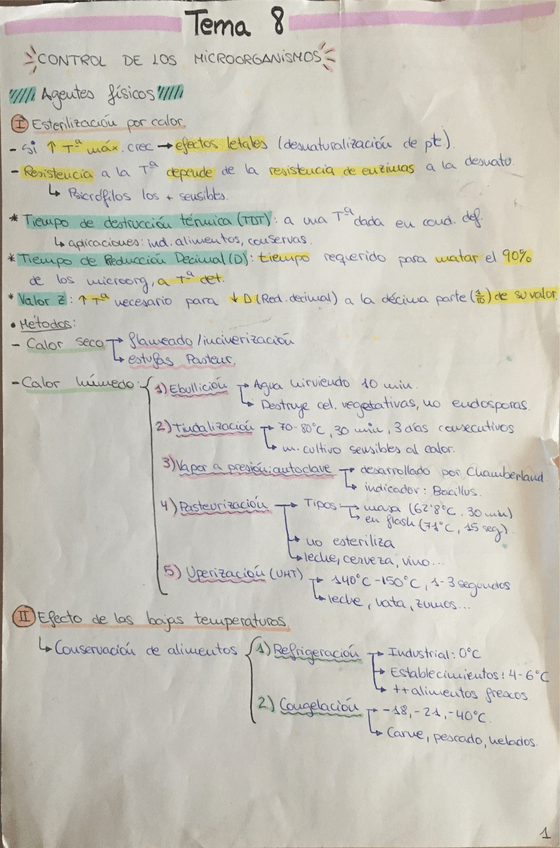 Tema 8
CONTROL DE LOS MICROORGANISMOS
Agentes físicos
I Esterilización por calor.
- Si ↑ Tª máx. crec → efectos letales (desnaturalización de pt).
- Resistencia a la Tª depende de la resistencia de enzimas a la desnat.
↳ Psicrófilos los + sensibles.
* Tiempo de destrucción térmica (TDT): a una Tª dada en cond. def.
↳ aplicaciones: ind. alimentos, conservas.
* Tiempo de Reducción Decimal (D): tiempo requerido para matar el 90%
de los microorg, a Tª det.
* Valor Z: ↑ Tª necesario para ↓ D (Red. decimal) a la décima parte de su valor
• Métodos:
- Calor seco → flameado/incinerización
↳ estufas Pasteur.
- Calor húmedo: 1) Ebullición → Agua hirviendo 10 min.
↳ Destruye cel. vegetativas, no endosporas.
2) Tindalización → 70-80°C, 30 min, 3 días consecutivos
↳ m. cultivo sensibles al calor.
3) Vapor a presión: autoclave → desarrollado por Chamberland
↳ indicador: Bacillus.
4) Pasteurización → Tipos: → masa (62'8°C, 30 min)
↳ en flash (71°C, 15 seg).
↳ no esteriliza
↳ leche, cerveza, vino...
5) Uperización (UHT) → 140°C-150°C, 1-3 segundos
↳ leche, nata, zumos...
II Efecto de las bajas temperaturas.
↳ Conservación de alimentos 1) Refrigeración → Industrial: 0°C
→ Establecimientos: 4-6°C
↳ ++ alimentos frescos
2) Congelación → -18, -21, -40°C.
↳ Carne, pescado, helados.
1